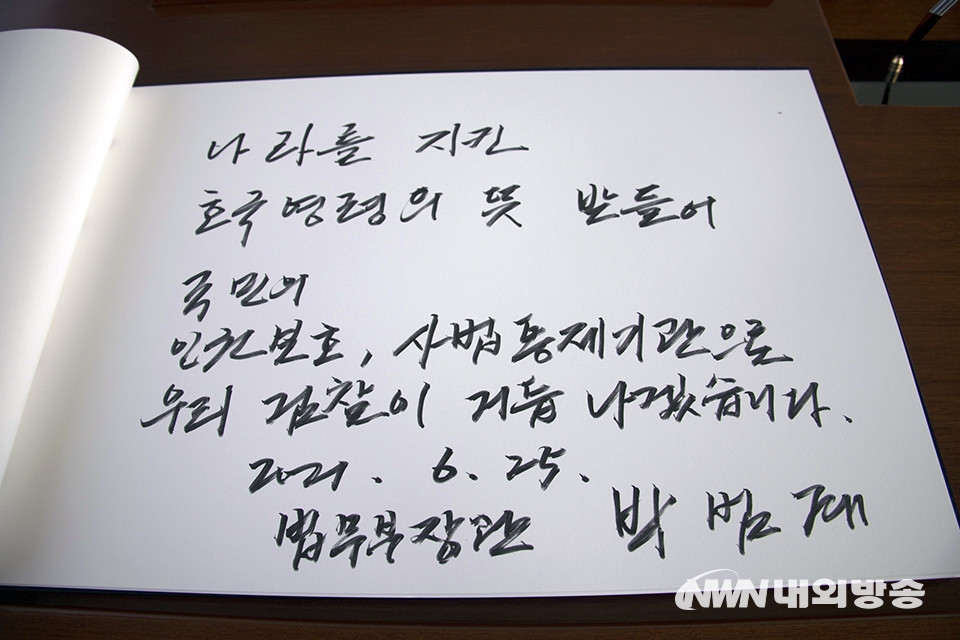 나라를 지킨
호국영령의 뜻 받들어
국민의
인권보호, 사법통제기관으로
우리 검찰이 거듭 나겠습니다.
2021. 6. 25.
법무부장관 박범계
NWN 내외방송